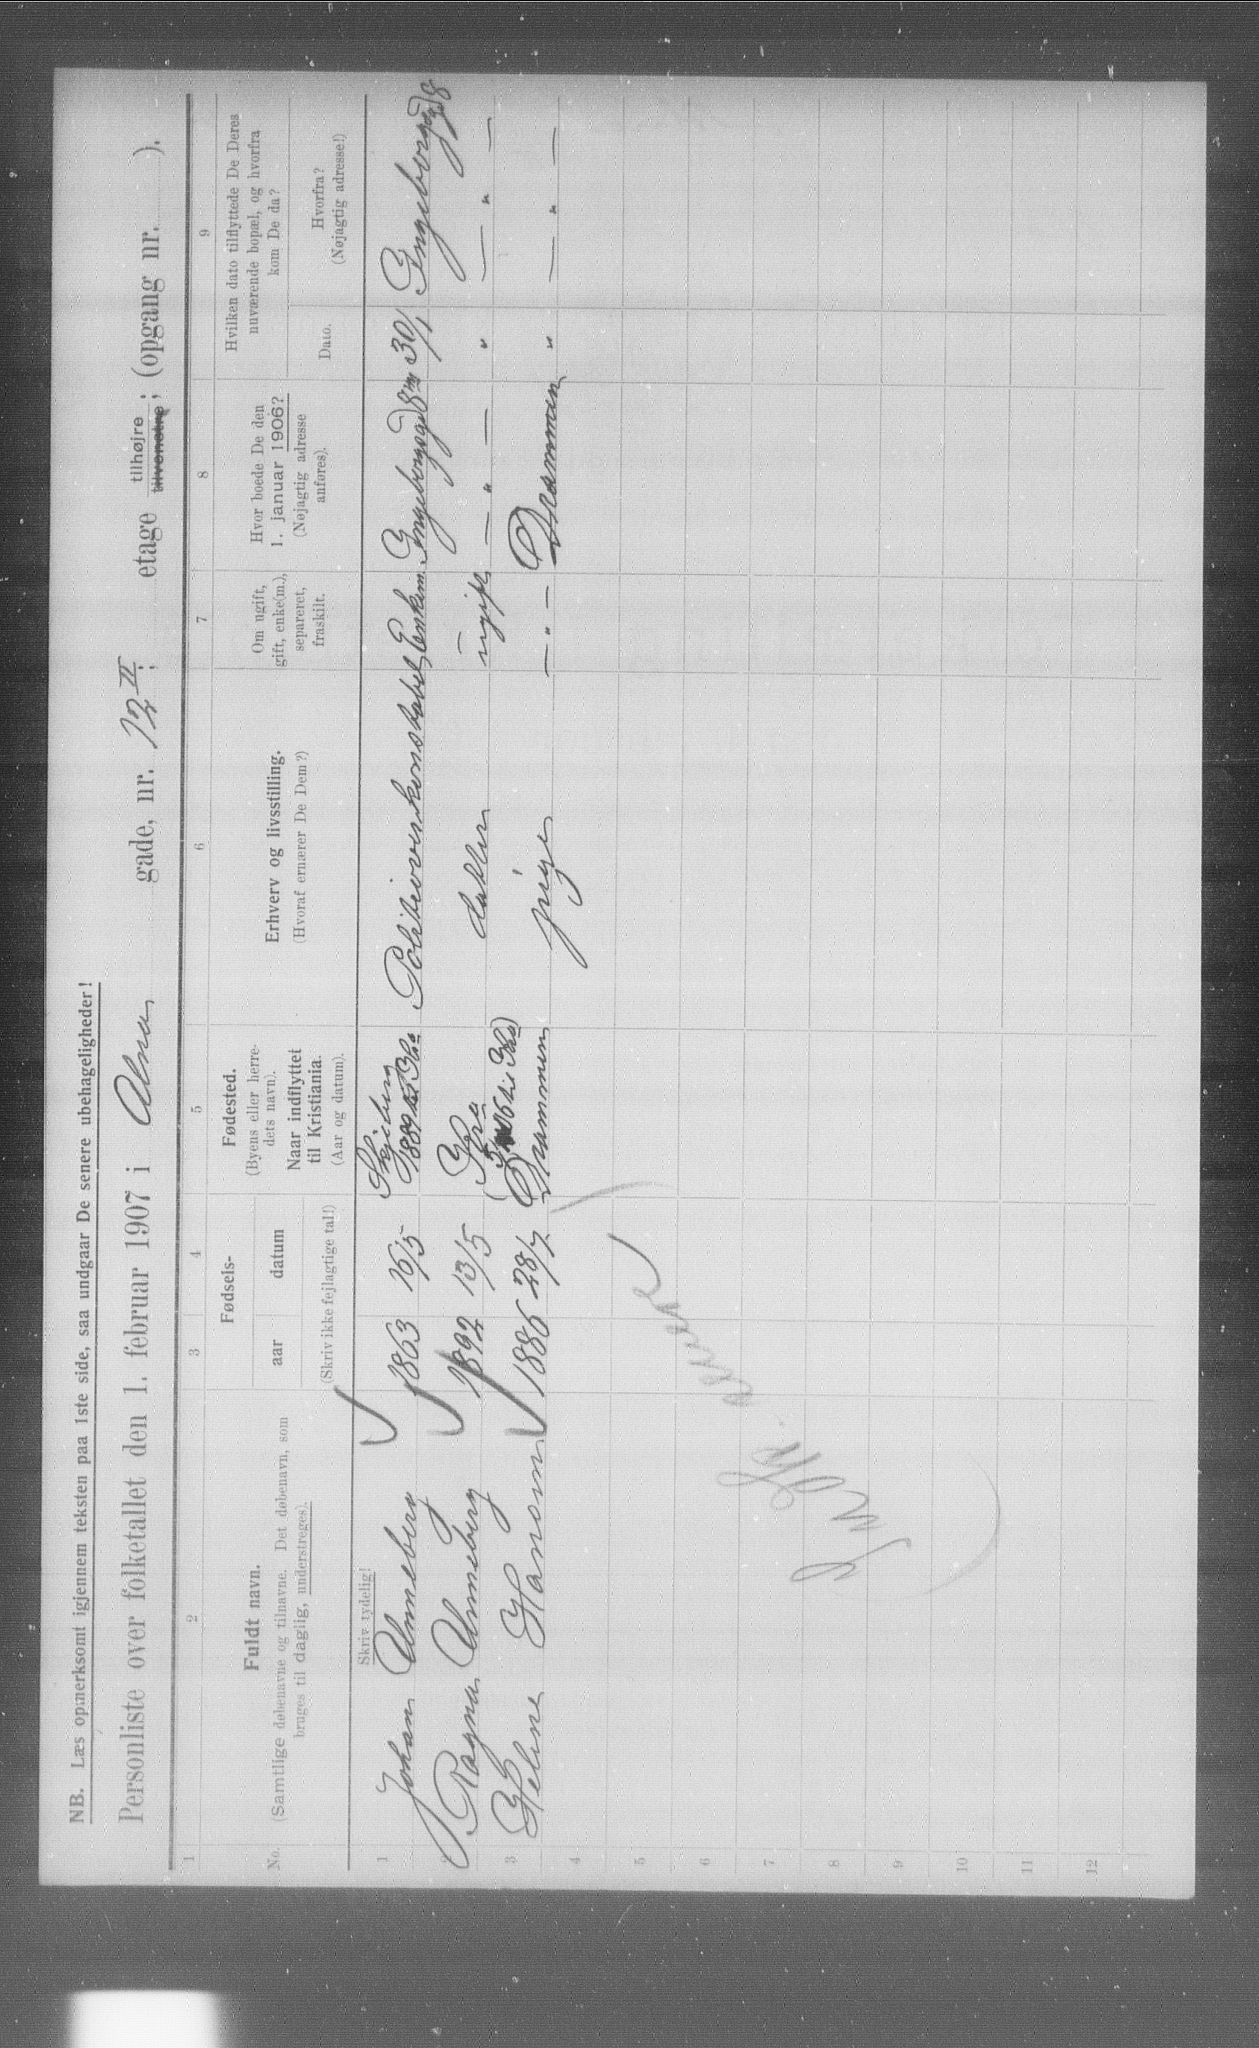 NB. Læs opmerksomt igjennem teksten paa 1ste side, saa undgaar De senere ubehageligheder!
Personliste over folketallet den 1. februar 1907 i Alna gade, nr. 12 II; etage tilhøjre tilvenstre; (opgang nr. ).
1 2 3 4 5 6 7 8 9
No.
Fuldt navn.
(Samtlige døbenavne og tilnavne. Det døbenavn, som
bruges til daglig, understreges).
Fødsels-
aar datum
(Skriv ikke fejlagtige tal!)
Fødested.
(Byens eller herre-
dets navn).
Naar indflyttet
til Kristiania.
(Aar og datum).
Erhverv og livsstilling.
(Hvoraf ernærer De Dem?)
Om ugift,
gift, enke(m.),
separeret,
fraskilt.
Hvor boede De den
1. januar 1906?
(Nøjagtig adresse
anføres).
Hvilken dato tilflyttede De Deres
nuværende bopæl, og hvorfra
kom De da?
Dato.
Hvorfra?
(Nøjagtig adresse!)
Skriv tydelig!
1 Johan Almeberg 1863 16/5 Skjeberg Politioverkonstabel Enkem. Ingeborgsgd 8 30/1 Ingeborgsgd 8
2 Ragna Almeberg 1892 13/5 Kra datter ugift — " — " — " —
3 Heline Hansen 1886 28/7 Drammen pige — " — Drammen " — " —
4
5
6
7
8
9
10
11
12